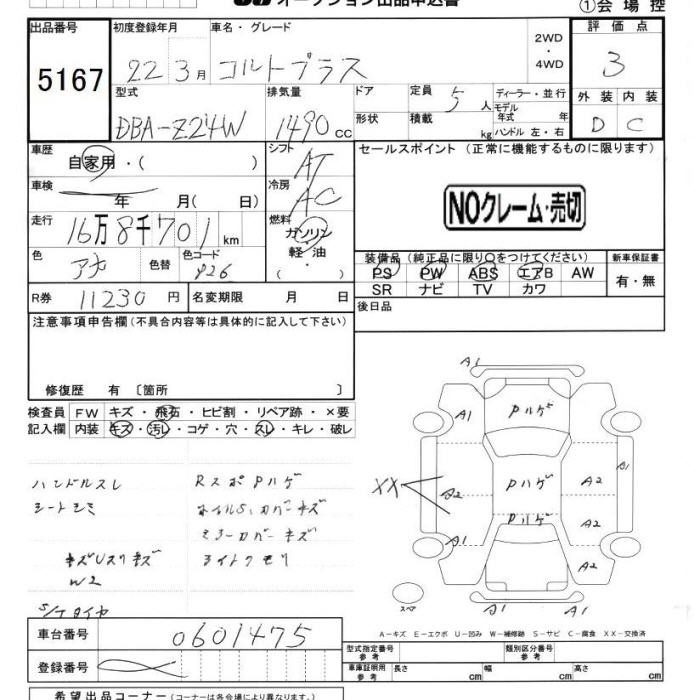 オークション出品申込書
①会場控
出品番号
5167
初度登録年月
22 3月
車名・グレード
コルトプラス
2WD
・
4WD
評価点
3
型式
DBA-Z24W
排気量
1490 cc
ドア
形状
定員 5人
積載 kg
ディーラー・並行
モデル年式 年
ハンドル 左・右
外装 内装
D C
車歴
自家用・( )
シフト
AT
セールスポイント (正常に機能するものに限ります)
NOクレーム・売切
車検
年 月( 日)
冷房
AC
走行
16万8千701km
燃料
ガソリン
軽・油
( )
色
アカ
色替
色コード
P26
装備品 (純正品に限り○をつけてください)
PS PW ABS エアB AW
SR ナビ TV カワ
新車保証書
有・無
R券 11230円
名変期限 月 日
後日品
注意事項申告欄(不具合内容等は具体的に記入して下さい)
修復歴 有 〔箇所 〕
検査員 FW キズ・飛石・ヒビ割・リペア跡・×要
記入欄 内装 キズ・汚レ・コゲ・穴・スレ・キレ・破レ
ハンドルスレ
シートシミ
キズUスリキズ
W2
S/Tタイヤ
RスポPハゲ
ホイルS,カバーキズ
ミラーカバーキズ
ライトクモリ
A1
A1
Pハゲ
A1
XX
A2
Pハゲ
A2
Pハゲ
A1
A2
A2
スペア
A1
A1
A-キズ E-エクボ U-凹み W-補修跡 S-サビ C-腐食 XX-交換済
車台番号
0601475
登録番号
型式指定番号
参考
類別区分番号
参考
車庫証明用
参考
長さ cm
幅 cm
高さ cm
希望出品コーナー(コーナーは各会場により異なります。)